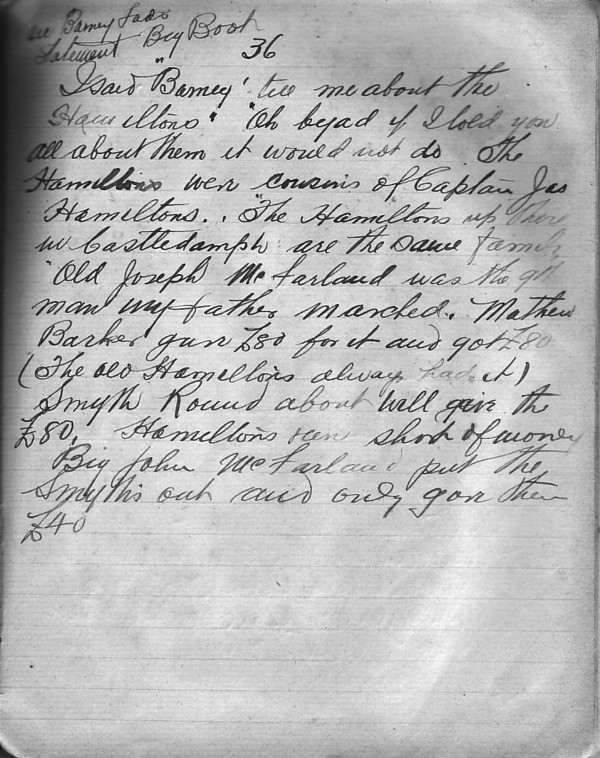 see Barney Fads
Statement Big Book
36
I said "Barney' tell me about the
Hamiltons" "Oh begad if I told you
all about them it would not do The
Hamiltons were cousins of Captain Jas
Hamiltons.. "The Hamiltons up there
in Castledamph are the same family
"Old Joseph McFarland was the
man my father marched. Mathew
Barker gave £80 for it and got £80
(The old Hamiltons always had it)
Smyth Round about will give the
£80, Hamiltons were short of money
Big John McFarland put the
Smyths out and only gave them
£40